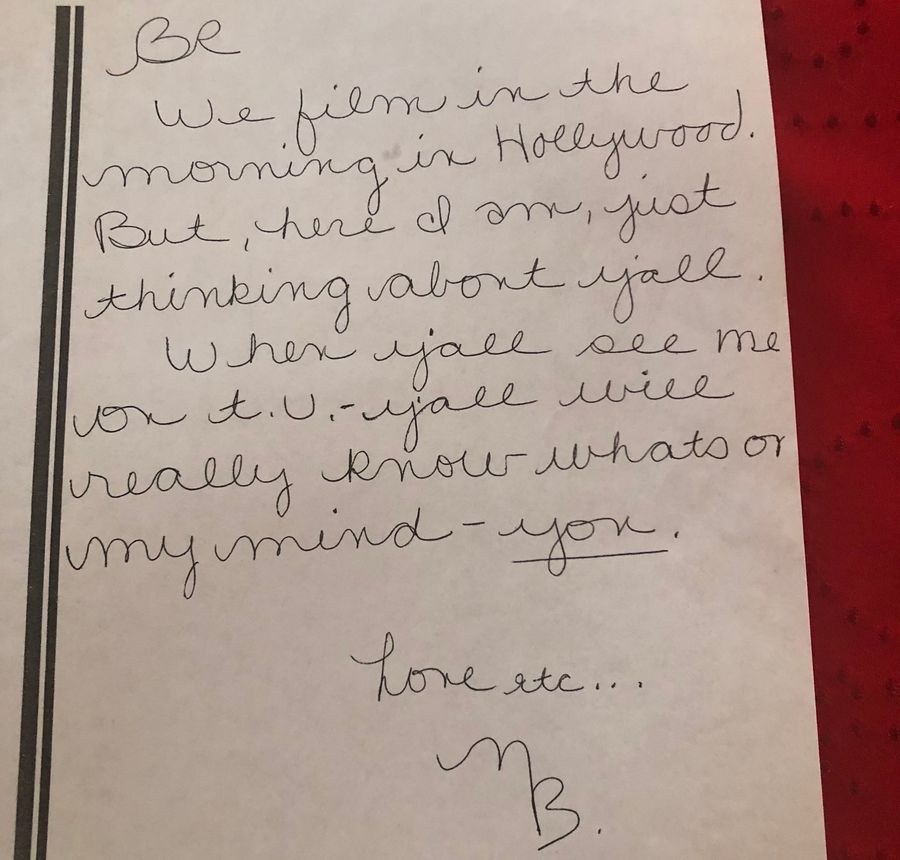 Be
We film in the
morning in Hollywood.
But, here I am, just
thinking about y'all.
When y'all see me
on t.v.-y'all will
really know whats on
my mind - you.
Love etc...
MB.